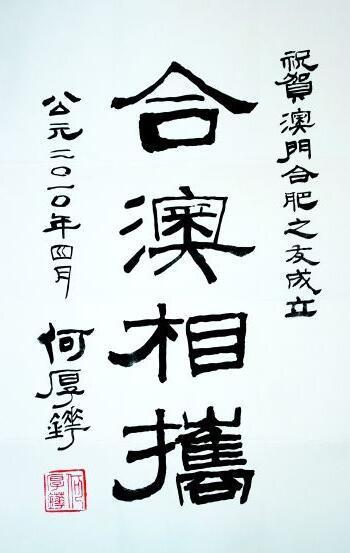 祝賀澳門合肥之友成立
合澳相攜
公元二〇一〇年四月
何厚鏵
何厚鏵